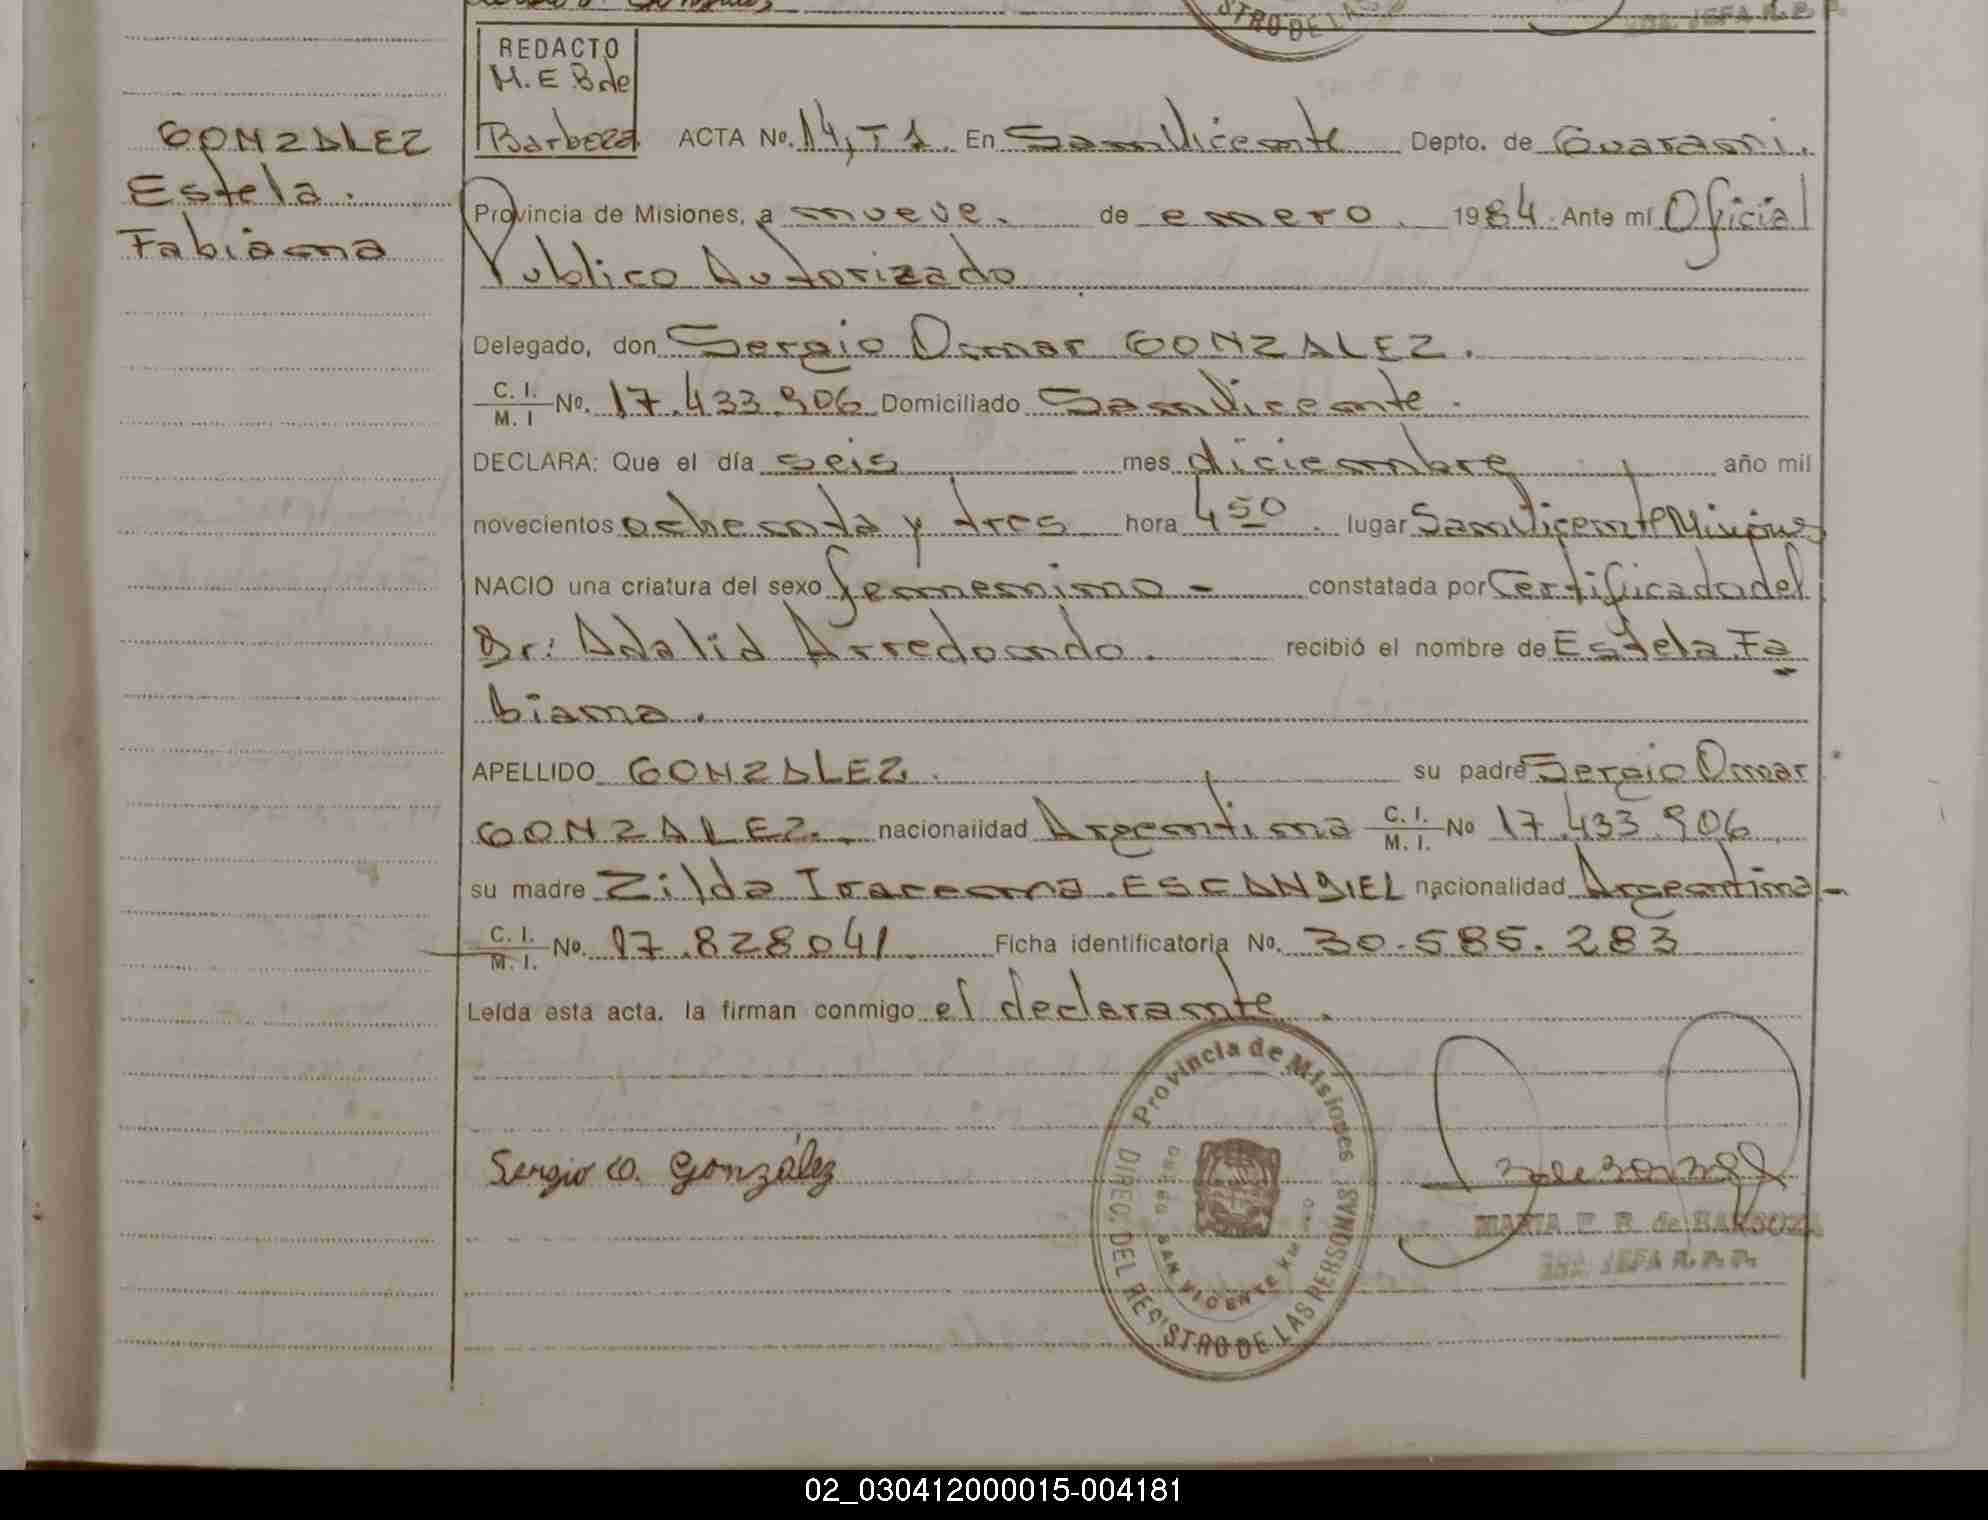 GONZALEZ
Estela.
Fabiana
REDACTO
M. E. B. de
Barboza
ACTA No. 14, T 1. En San Vicente Depto. de Guarani.
Provincia de Misiones, a nueve. de enero. 1984. Ante mí Oficial
Publico Autorizado
Delegado, don Sergio Omar GONZALEZ.
C. I. / M. I No. 17.433.906 Domiciliado San Vicente.
DECLARA: Que el día seis mes diciembre año mil
novecientos ochenta y tres hora 4 50. lugar San Vicente Misiones
NACIO una criatura del sexo femenino - constatada por Certificado del
Dr: Adalid Arredondo. recibió el nombre de Estela Fa
biana.
APELLIDO GONZALEZ. su padre Sergio Omar
GONZALEZ. nacionalidad Argentina C. I. / M. I. No 17.433.906
su madre Zilda Iracema ESCANDIEL nacionalidad Argentina-
C. I. / M. I. No. 17.828041 Ficha identificatoria No. 30.585.283
Leída esta acta, la firman conmigo el declarante.
Sergio O. González
Provincia de Misiones
DIREC. DEL REGISTRO DE LAS PERSONAS
SAN VICENTE KM
MARIA E. B. de BARBOZA
JEFA R. P. P.
02_030412000015-004181